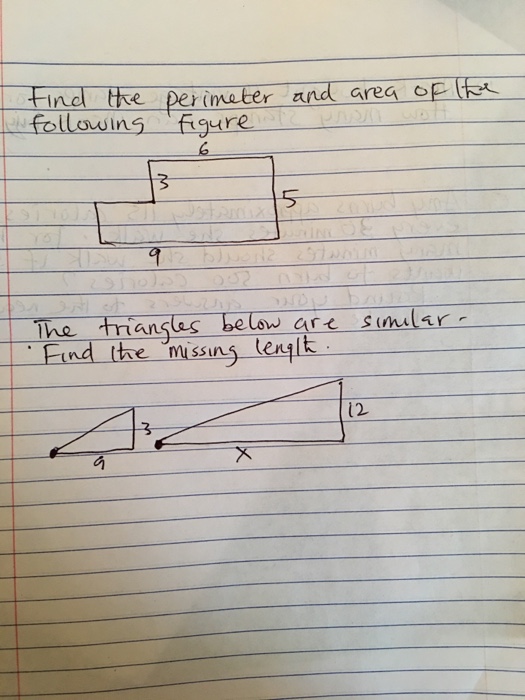 Find the perimeter and area of the
following figure
6
3
5
9
The triangles below are similar.
Find the missing length.
3
12
9
x